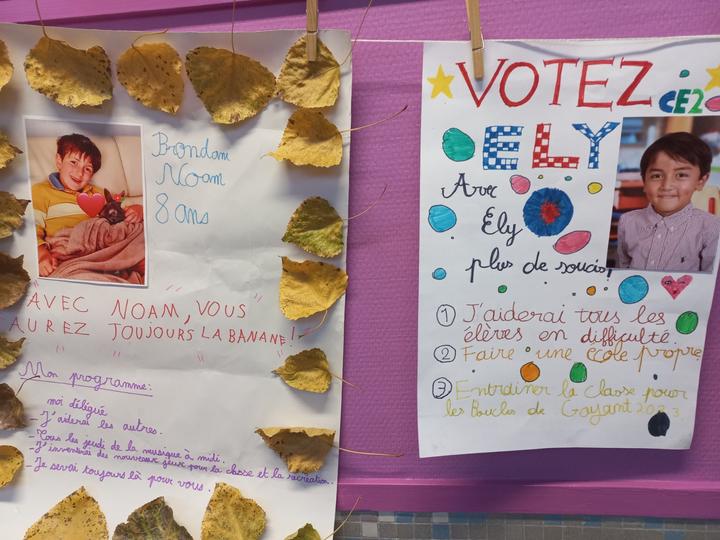 Brondani
Noam
8 ans
"AVEC NOAM, VOUS
AUREZ TOUJOURS LA BANANE!"
Mon programme:
moi délégué
- J'aiderai les autres.
- Tous les jeudi de la musique à midi.
- J'inventerai des nouveaux jeux pour la classe et la récréation.
- Je serai toujours là pour vous.
VOTEZ
CE2
ELY
Avec
Ely
plus de soucis!
1 J'aiderai tous les
élèves en difficulté.
2 Faire une école propre
3 Entraîner la classe pour
les Boucles de Gayant 2023.